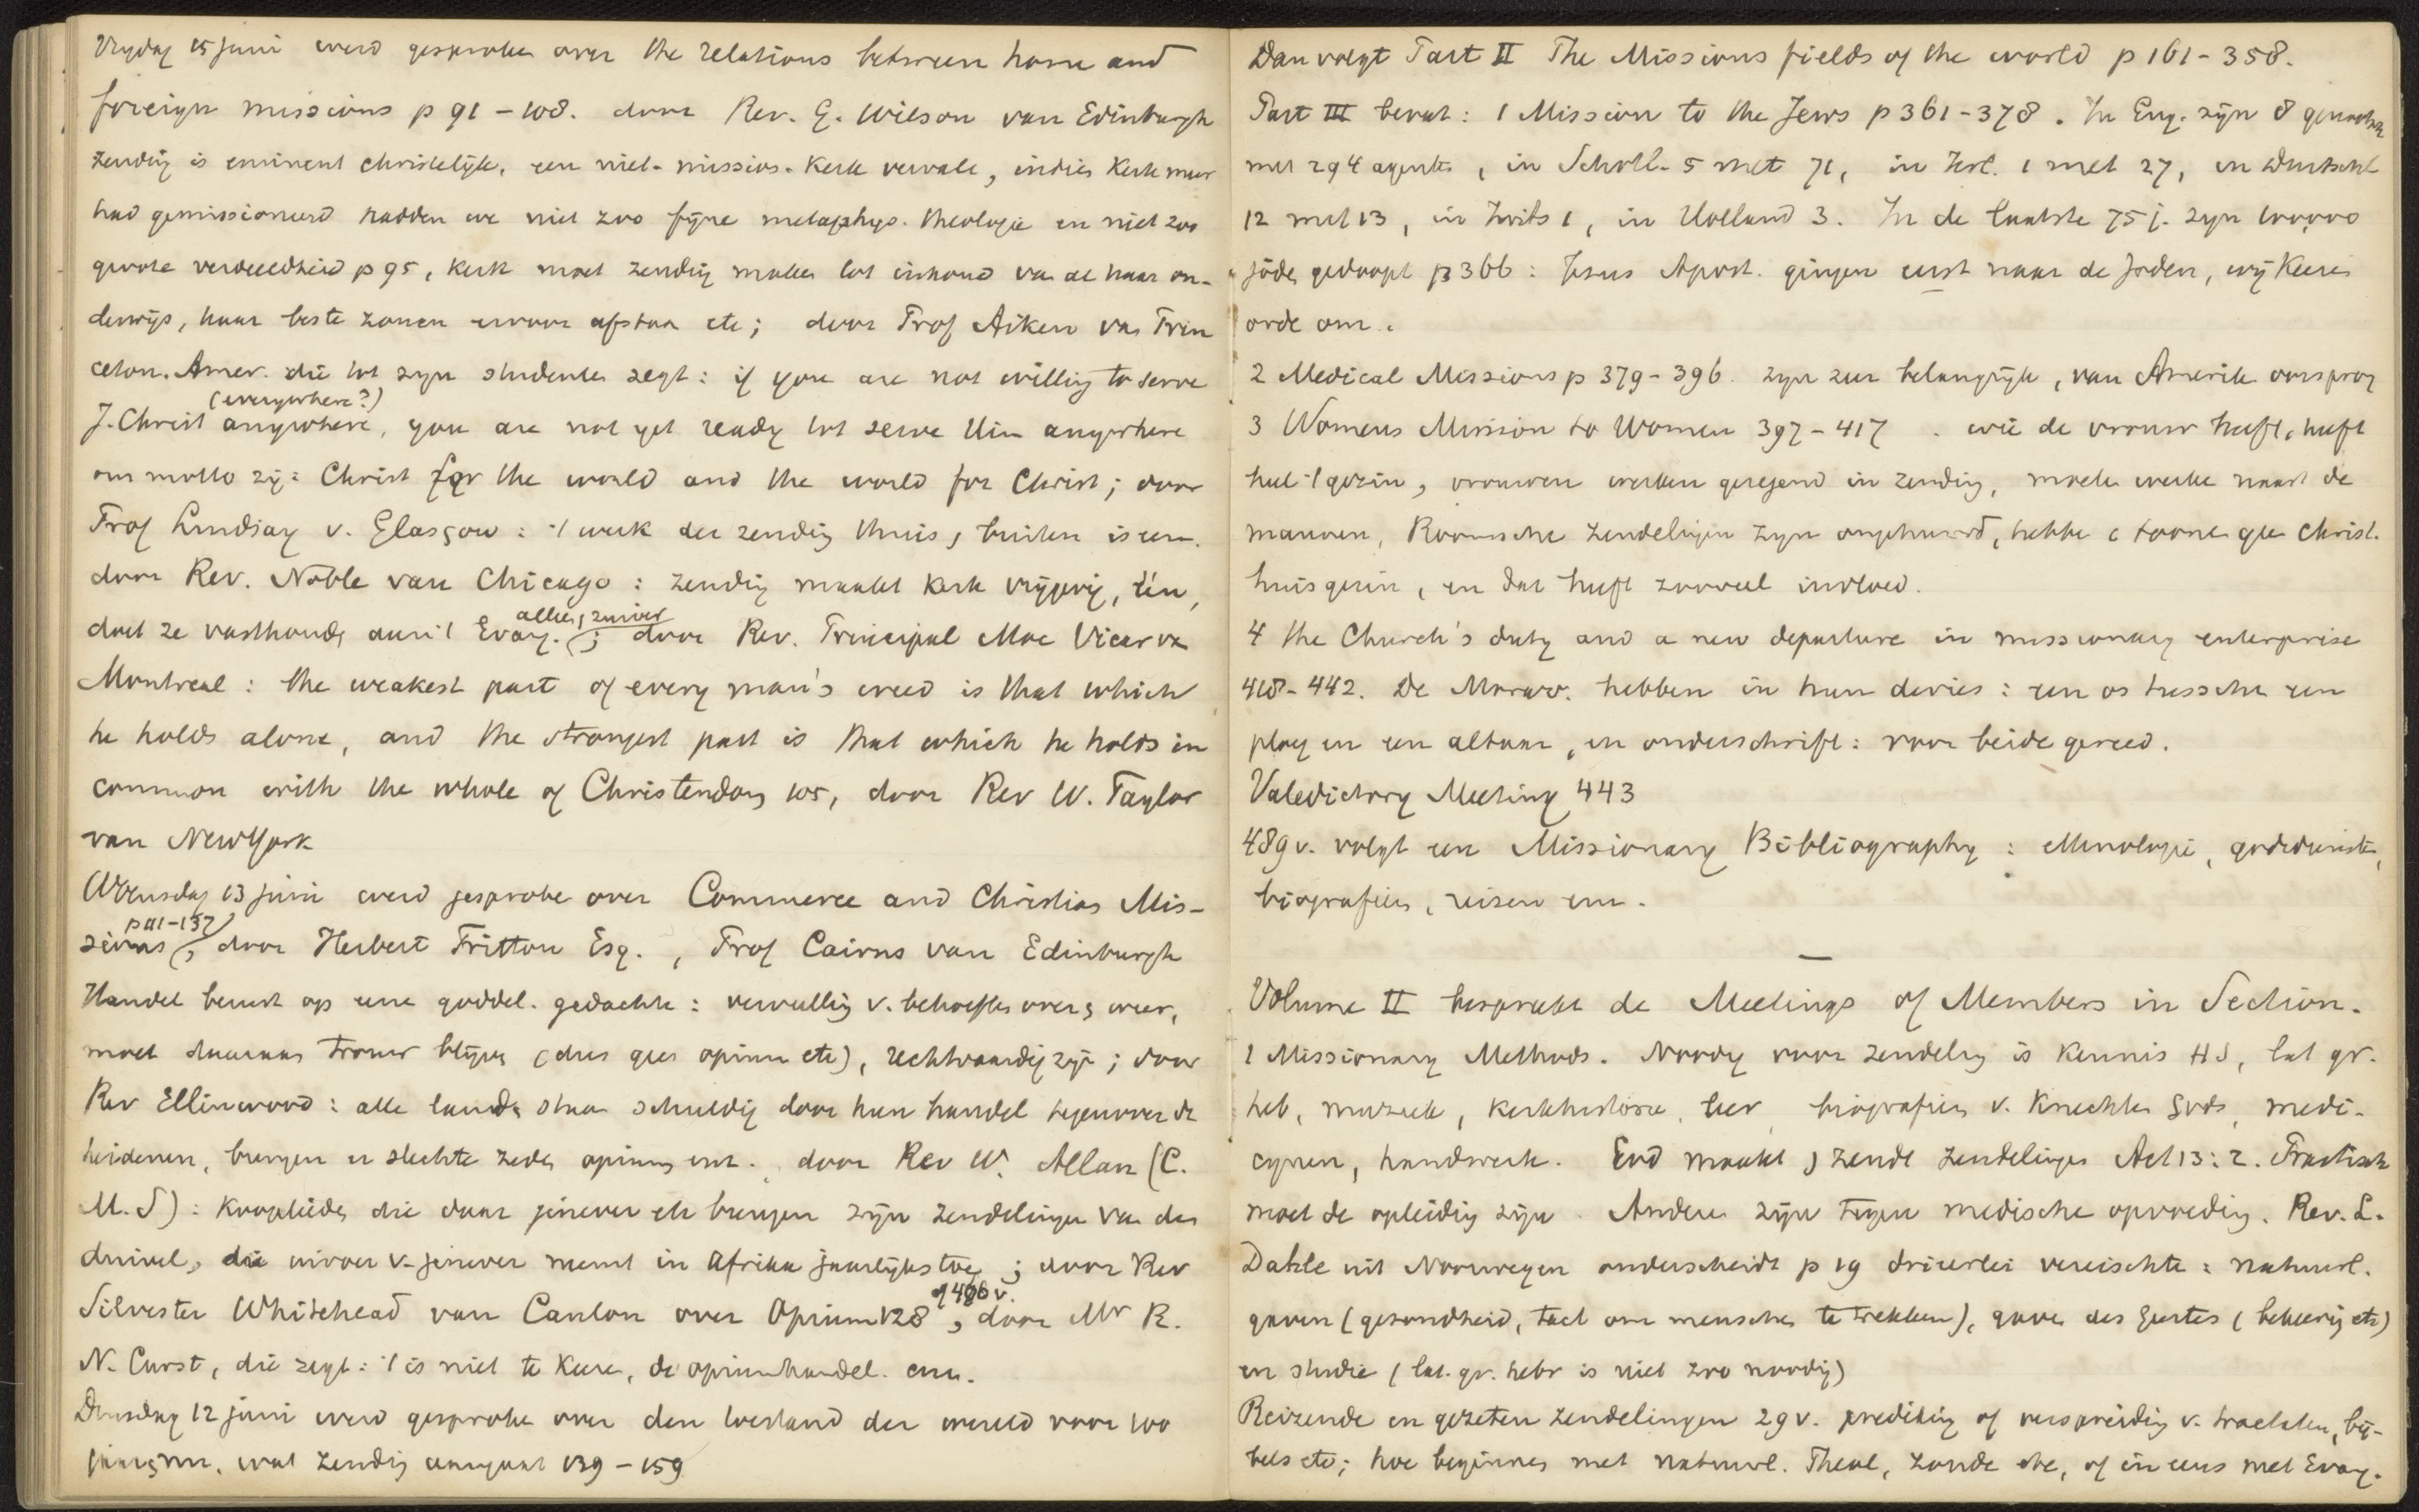 Vrijdag 15 juni werd gesproken over the relations between home and
foreign missions p 91-108. door Rev. G. Wilson van Edinburgh
zending is eminent christelijk, een niet-missios. kerk vervalt, indien kerk meer
had gemissioneerd hadden we niet zoo fijne metaphys. theologie en niet zoo
groote verdeeldheid p 95, kerk moet zending maken tot inhoud van al haar on-
derwijs, haar beste zonen ervoor afstaan etc; door Prof Aiken van Prin
ceton. Amer. die tot zijn studenten zegt: if you are not willing to serve
(everywhere?)
J. Christ anywhere, you are not yet ready tot serve Him anywhere
ons motto zij: Christ for the world and the world for Christ; door
Prof Lindsay v. Glasgow: 't werk der zending thuis, buiten is een.
door Rev. Noble van Chicago: zending maakt kerk vrijgevig, één,
doet ze vasthouden aan 't Evang. alleen, zuiver; door Rev. Principal Mac Vicar van
Montreal: the weakest part of every man's creed is that which
he holds alone, and the strongest part is that which he holds in
common with the whole of Christendom 105, door Rev W. Taylor
van New York
Woensdag 13 juni werd gesproken over Commerce and Christian Mis-
sions p 111-137, door Herbert Tritton Esq., Prof Cairns van Edinburgh
Handel berust op eene goddel. gedachte: vervulling v. behoeften over, weer,
moet daaraan trouw blijven (dus geen opium etc), rechtvaardig zijn; door
Rev Ellinwood: alle landen staan schuldig door hun handel tegenover de
heidenen, brengen er slechte zeden opium enz. door Rev W. Allan (C.
M.S): kooplieden die daar jenever etc brengen zijn zendelingen van den
duivel, die invoer v. jenever neemt in Afrika jaarlijks toe; door Rev
Silvester Whitehead van Canton over Opium 128 of 486 v., door Mr R.
N. Curst, die zegt: 't is niet te keeren, de opiumhandel. enz.
Dinsdag 12 juni werd gesproken over den toestand der wereld voor 100
jaar, nu, wat zending aangaat 139-159
Dan volgt Part II The Missions fields of the world p 161-358.
Part III bevat: 1 Mission to the Jews p 361-378. In Eng. zijn 8 genootsch
met 294 agents, in Schotl. 5 met 71, in Ierl. 1 met 27, in Duitschl
12 met 13, in Zwits 1, in Holland 3. In de laatste 75 j. zijn 100,000
joden gedoopt p 366: Jezus Apost. gingen eerst naar de Joden, wij keeren
orde om.
2 Medical Missions p 379-396 zijn zeer belangrijk, van Amerik oorsprong
3 Womens Mission to Women 397-417. wie de vrouw heeft, heeft
heel 't gezin, vrouwen werken gezegend in zending, moeten werken naast de
mannen, Roomsche zendelingen zijn ongehuwd, hebben te toonen geen Christ.
huisgezin, en dat heeft zooveel invloed.
4 the Church's duty and a new departure in missionary enterprise
418-442. De Moravo. hebben in hun devies: een os tusschen een
ploeg en een altaar, en onderschrift: voor beide gereed.
Valedictory Meeting 443
489 v. volgt een Missionary Bibliography: ethnologie, godsdiensten,
biografieën, reizen enz.
Volume II bespreekt de Meetings of Members in Section.
1 Missionary Methods. Noodig voor zendeling is kennis HS, lat gr.
heb, muziek, kerkhistorie, biografieën v. knechten Gods, medi-
cijnen, handwerk. God maakt, zendt zendelingen Act 13:2. Practisch
moet de opleiding zijn. Anderen zijn tegen medische opvoeding. Rev. L.
Dahle uit Noorwegen onderscheidt p 19 drieerlei vereischte: natuurl.
gaven (gezondheid, tact om menschen te trekken), gaven des Geestes (bekeering etc)
en studie (lat. gr. hebr is niet zoo noodig)
Reizende en gezeten zendelingen 29 v. prediking of verspreiding v. tractaten, bij-
bels etc; hoe beginnen met natuurl. Theol, zonde etc, of ineens met Evang.